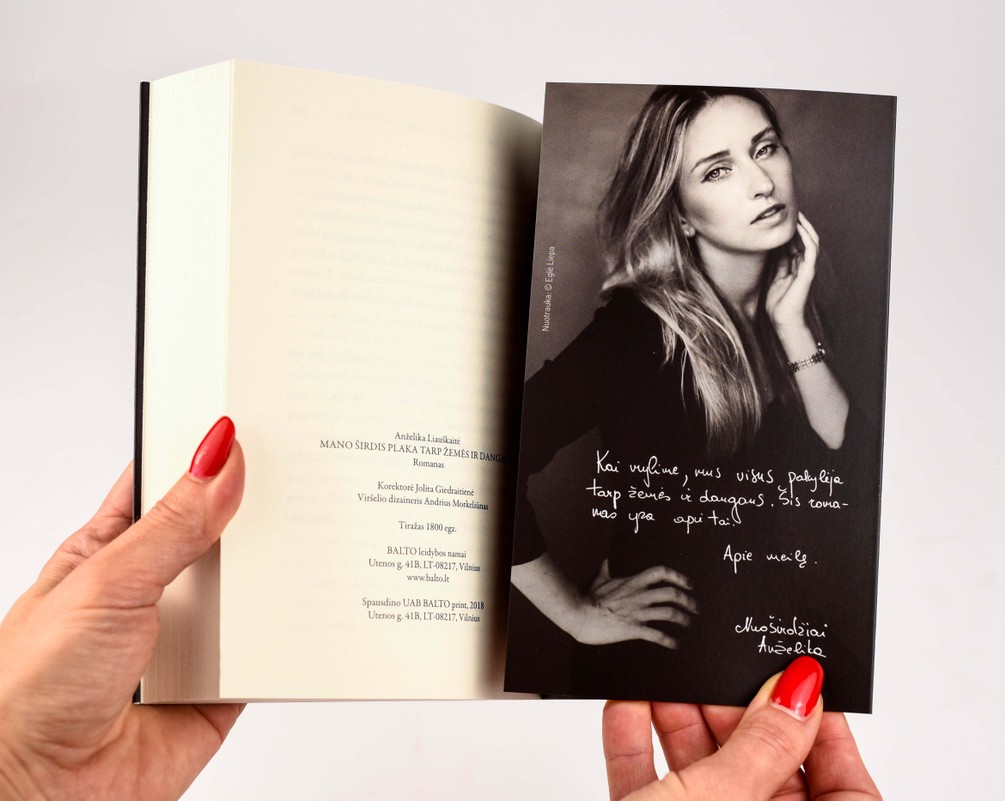 Anželika Liauškaitė
MANO ŠIRDIS PLAKA TARP ŽEMĖS IR DANGAUS
Romanas
Korektorė Jolita Giedraitienė
Viršelio dizaineris Andrius Morkeliūnas
Tiražas 1800 egz.
BALTO leidybos namai
Utenos g. 41B, LT-08217, Vilnius
www.balto.lt
Spausdino UAB BALTO print, 2018
Utenos g. 41B, LT-08217, Vilnius
Nuotrauka: © Eglė Liepa
Kai mylime, mus viskas pakylėja
tarp žemės ir dangaus. Šis roma-
nas yra apie tai.
Apie meilę.
Nuoširdžiai
Anželika